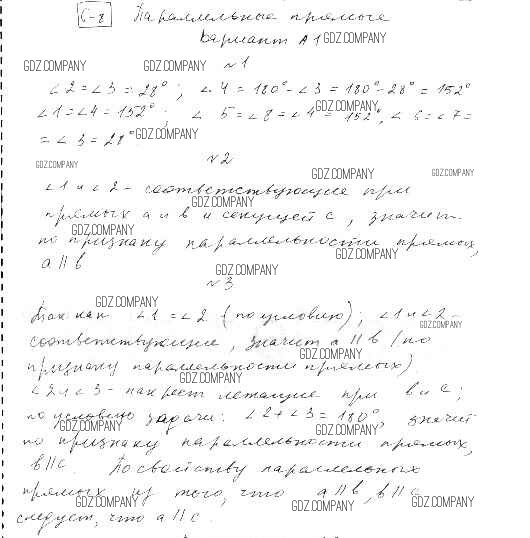 С-8 Параллельные прямые
Вариант А1 GDZ.COMPANY
GDZ.COMPANY GDZ.COMPANY №1
∠2=∠3=28°; ∠4=180°-∠3=180°-28°=152°
GDZ.COMPANY
∠1=∠4=152°; ∠5=∠8=∠4=152°, ∠6=∠7=
=∠3=28° GDZ.COMPANY
GDZ.COMPANY №2
GDZ.COMPANY GDZ.COMPANY
∠1 и ∠2 - соответствующие при
GDZ.COMPANY
прямых a и b и секущей c, значит
GDZ.COMPANY
по признаку параллельности прямых,
GDZ.COMPANY
a || b GDZ.COMPANY
№3
GDZ.COMPANY
Так как ∠1=∠2 (по условию); ∠1 и ∠2-
GDZ.COMPANY
соответствующие, значит a || b (по
GDZ.COMPANY
признаку параллельности прямых)
GDZ.COMPANY
∠2 и ∠3 - накрест летащие при b и c;
по условию задачи: ∠2+∠3=180°, значит
GDZ.COMPANY GDZ.COMPANY
по признаку параллельности прямых,
b || c. По свойству параллельных
GDZ.COMPANY
прямых из того, что a || b, b || c
GDZ.COMPANY GDZ.COMPANY GDZ.COMPANY
следует, что a || c.